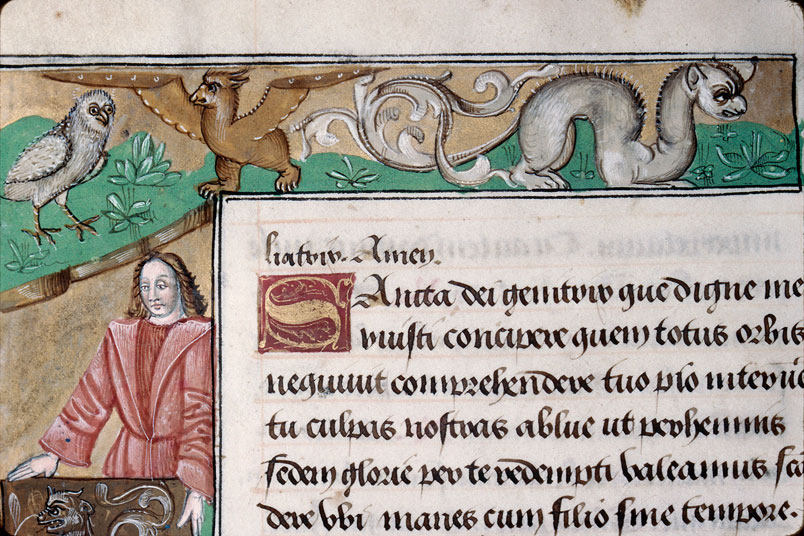 liatrix. Amen.
SAncta dei genitrix que digne me
ruisti concipere quem totus orbis
nequiuit comprehendere tuo pio interue
tu culpas nostras ablue ut perhennis
sedem glorie per te redempti valeamus scan
dere vbi manes cum filio sine tempore.